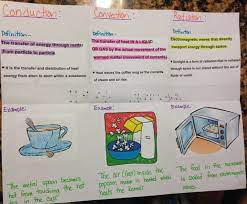 Conduction:
Definition-
The transfer of energy through matter
from particle to particle
• It is the transfer and distribution of heat
energy from atom to atom within a substance
Example:
The metal spoon becomes
hot from touching the hot
in the cup.
Convection:
Definition-
The transfer of heat IN A LIQUID
OR GAS by the actual movement of the
warmed matter (movement of currents)
• Heat leaves the coffee mug as the currents
of steam and air rise.
Example:
The air (gas) inside the
popcorn maker is heated when
heats the kernels.
Radiation:
Definition-
Electromagnetic waves that directly
transport energy through space
• Sunlight is a form of radiation that is radiated
through space to our planet without the aid of
fluids or solids.
Example:
The food in the microwave
is cooked from electromagnetic
waves.